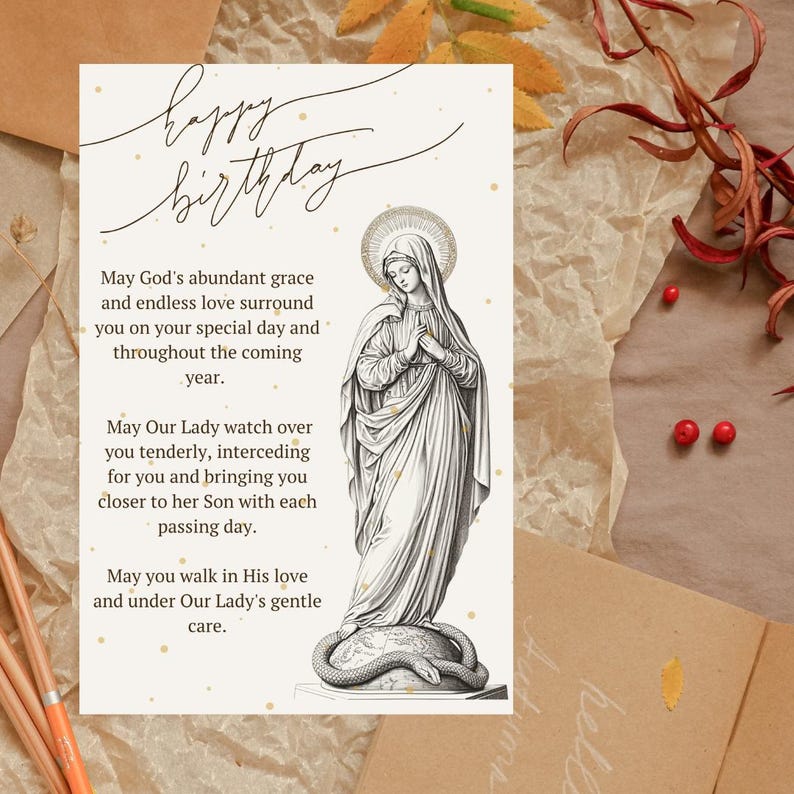 happy
birthday
May God's abundant grace
and endless love surround
you on your special day and
throughout the coming
year.
May Our Lady watch over
you tenderly, interceding
for you and bringing you
closer to her Son with each
passing day.
May you walk in His love
and under Our Lady's gentle
care.
hello
Autumn